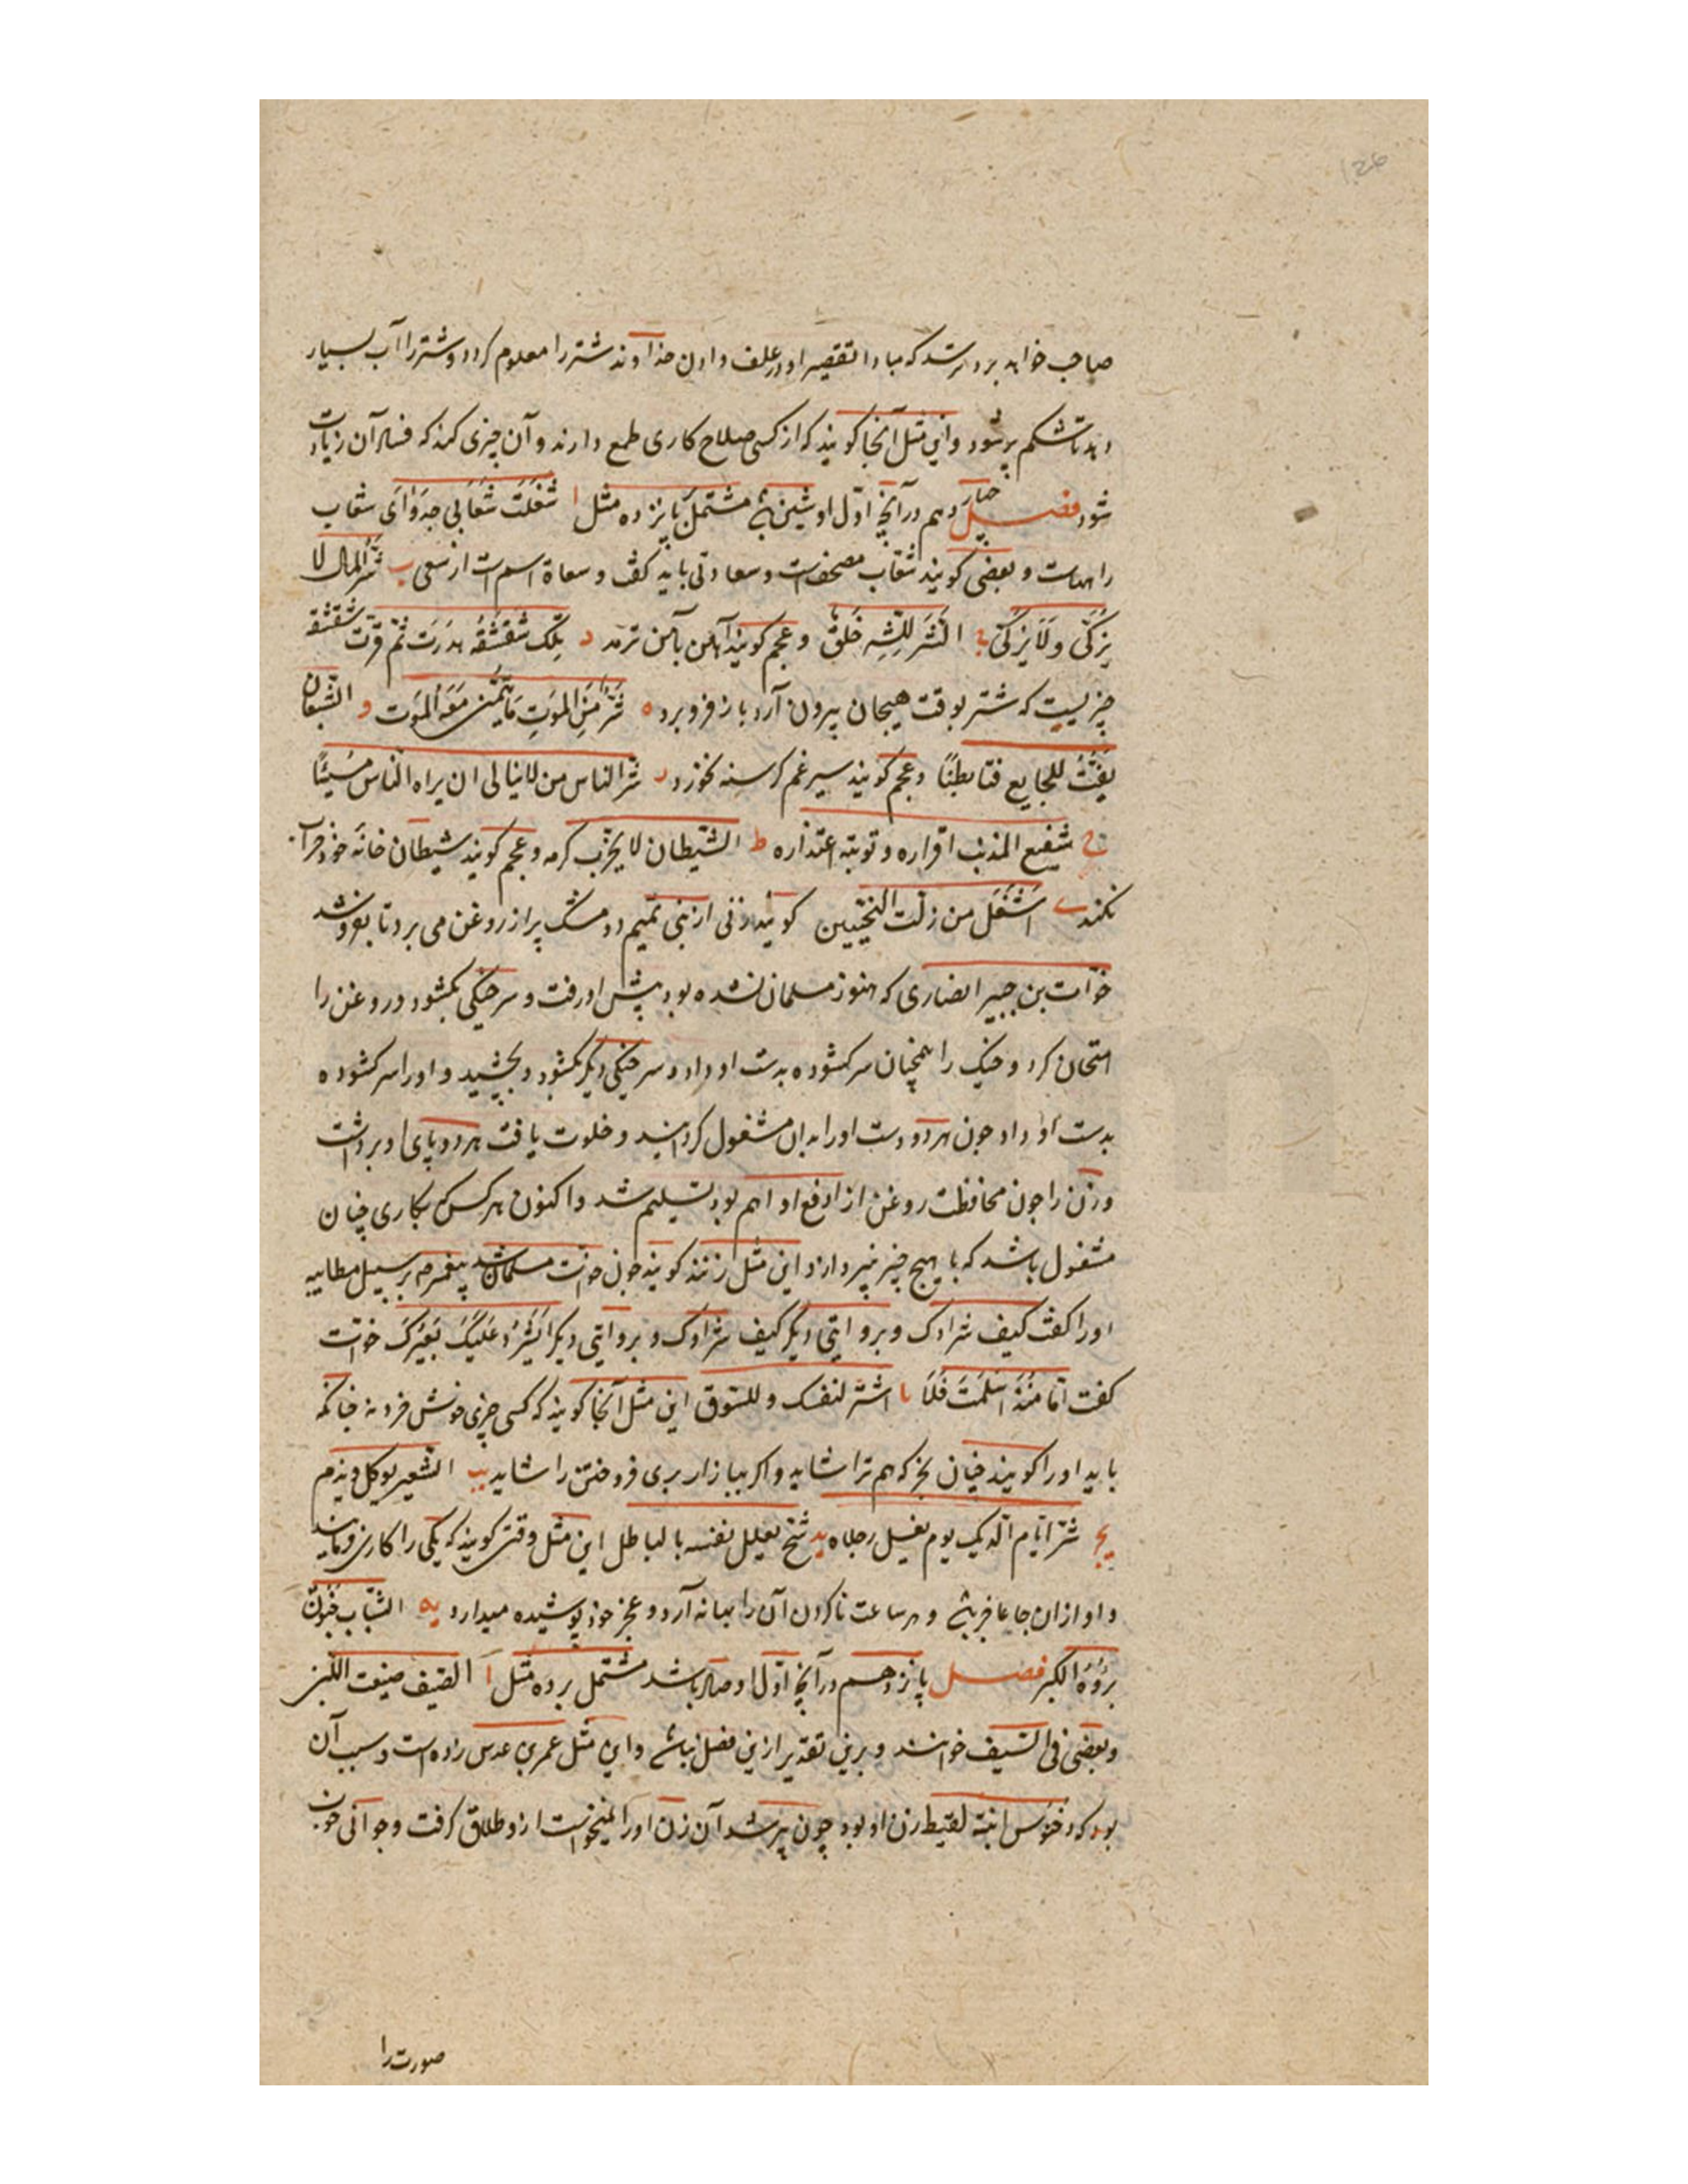 صاحب خواهد برد ترسد که مبادا تقصیر او در علف دادن خداوند شتر را معلوم کردد و شتر را آب بسیار
دهد تا شکم پر شود و این مثل آنجا کویند که از کسی صلاح کاری طمع دارند و آن چیزی کند که فساد آن زیادت
شود فصل چهاردهم در آنچ اوّل او شین بود مشتمل بر پانزده مثل ا شَغَلَت شعَابی جَدوَایَ شعاب
راههاست و بعضی کویند شعاب مصحف است و سعاتی باید کفت و سعاة اسم است از سعی ب شرّ المال لا
یزَکَّی وَلَا یزکّی ج الشَر للِشَّر خُلقَ و عجم کویند آهن بآهن توان برید د تِلکَ شقشقُه هدَرَت ثمّ قرّت شقشقه
چیزیست که شتر بوقت هیجان بیرون آرد و باز فرو برد ه شَرٌّ مِنَ المَوتِ مَا یُتَمَنّی مَعَهُ المَوت و الشّبعَان
یفُتُّ للجایع فتا بطیًا و عجم کویند سیر غم کرسنه نخورد ز شر الناس من لا یبالی ان یراه الناس مُسِیئًا
ح شفیع المذنب اقراره و توبته اعتذاره ط الشیطان لا یخرّب کرمه و عجم کویند شیطان خانهٔ خود خراب
نکند ی اشغَل من ذات النحیین کویند زنی از بنی تمیم دو مشک پر از روغن می برد تا بفروشد
خوّات بن جبیر انصاری که هنوز مسلمان نشده بود پیش او رفت و سر خیکی بکشود و روغن را
امتحان کرد و خیک را همچنان سرکشوده بدست او داد و سر خیکی دیکر بکشود و بچشید و او را سرکشوده
بدست او داد چون هر دو دست او را بدان مشغول کردانید و خلوت یافت هر دو پای او برداشت
و زن را چون محافظت روغن از دفع او اهم بود تسلیم شد و اکنون هر کس که بکاری چنان
مشغول باشد که با هیچ چیز نپردازد این مثل زنند کویند چون خوّات مسلمان شد پیغمبر صم بر سبیل مطایبه
او را کفت کیف شرادک و بروایتی دیکر کیف شرادک و بروایتی دیکر ایَشرُدُ عَلَیکَ بَعیرُکَ خوّات
کفت امّا مُنذُ اسلَمتُ فَلَا یا اشتر لنفسک و للسّوق این مثل آنجا کویند که کسی چیزی خوش خرد نه چنانکه
باید او را کویند چنان بخر که هم ترا شاید و اکر ببازار بری فروختن را شاید یب الشعیر یوکل و یذم
یج شرّ ایّام الدیک یوم یغسل رجلاه ید شیخ یعلل نفسه بالباطل این مثل وقتی کویند که یکی را کاری فرمایند
و او از آن جا عاجز بود و هر ساعت ناکردن آن را بهانه آرد و عجز خود پوشیده میدارد یه الشَّباب جُنونٌ
بُروُهُ الکبر فصل پانزدهم در آنچ اوّل او صاد باشد مشتمل بر ده مثل ا الصیف ضیّعت اللبن
و بعضی فی الصیف خوانند و برین تقدیر ازین فصل نباشد و این مثل عمرو بن عدس زده است و سبب آن
بود که دختنوس ابنة لقیط زن او بود چون پیر شد آن زن او را نمیخواست ازو طلاق کرفت و جوانی خوب
صورت را